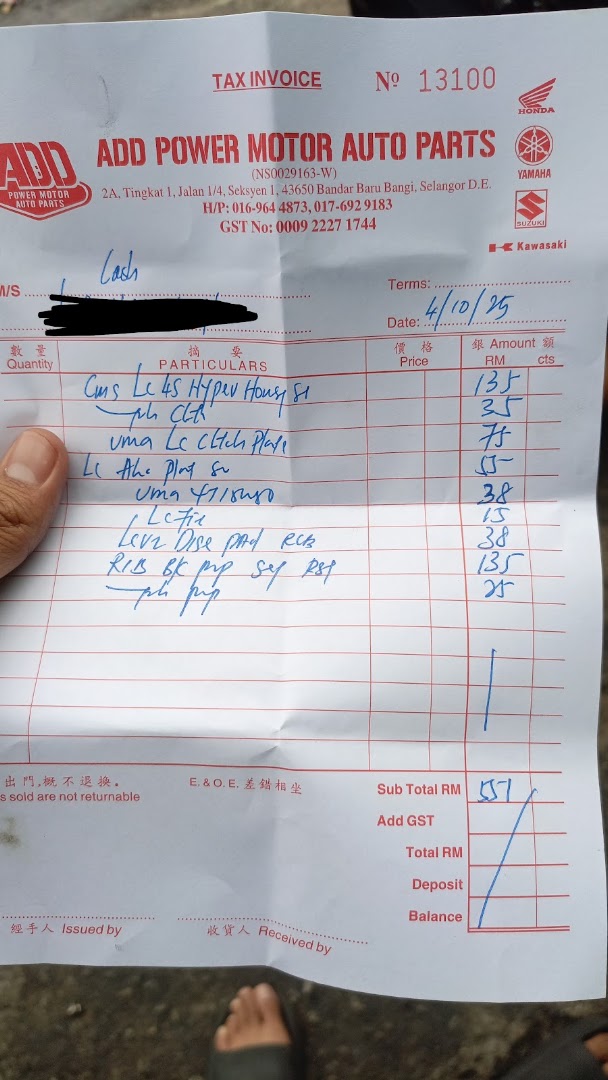 TAX INVOICE Nº 13100
HONDA
ADD
POWER MOTOR
AUTO PARTS
ADD POWER MOTOR AUTO PARTS
(NS0029163-W)
2A, Tingkat 1, Jalan 1/4, Seksyen 1, 43650 Bandar Baru Bangi, Selangor D.E.
H/P: 016-964 4873, 017-692 9183
GST No: 0009 2227 1744
YAMAHA
SUZUKI
Kawasaki
M/S Cash
Terms:
Date: 4/10/25
數 量 摘 要 價 格 銀 Amount 額
Quantity PARTICULARS Price RM cts
Cms Lc 4S Hyper 135
35
uma Lc Cltch Plate 75
Lc 55
uma 38
Lc 15
Disc pad RCB 38
RCB BK pmp 135
pmp 25
出門,概不退換。 E. & O. E. 差錯相坐
s sold are not returnable
Sub Total RM 551
Add GST
Total RM
Deposit
Balance
經手人 Issued by 收貨人 Received by